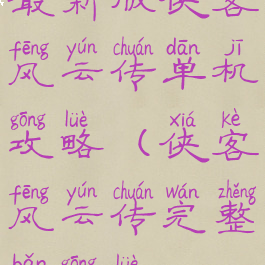 最新版侠客
fēng yún chuán dān jī
风云传单机
gōng lüè xiá kè
攻略（侠客
fēng yún chuán wán zhěng
风云传完整
bǎn gōng lüè